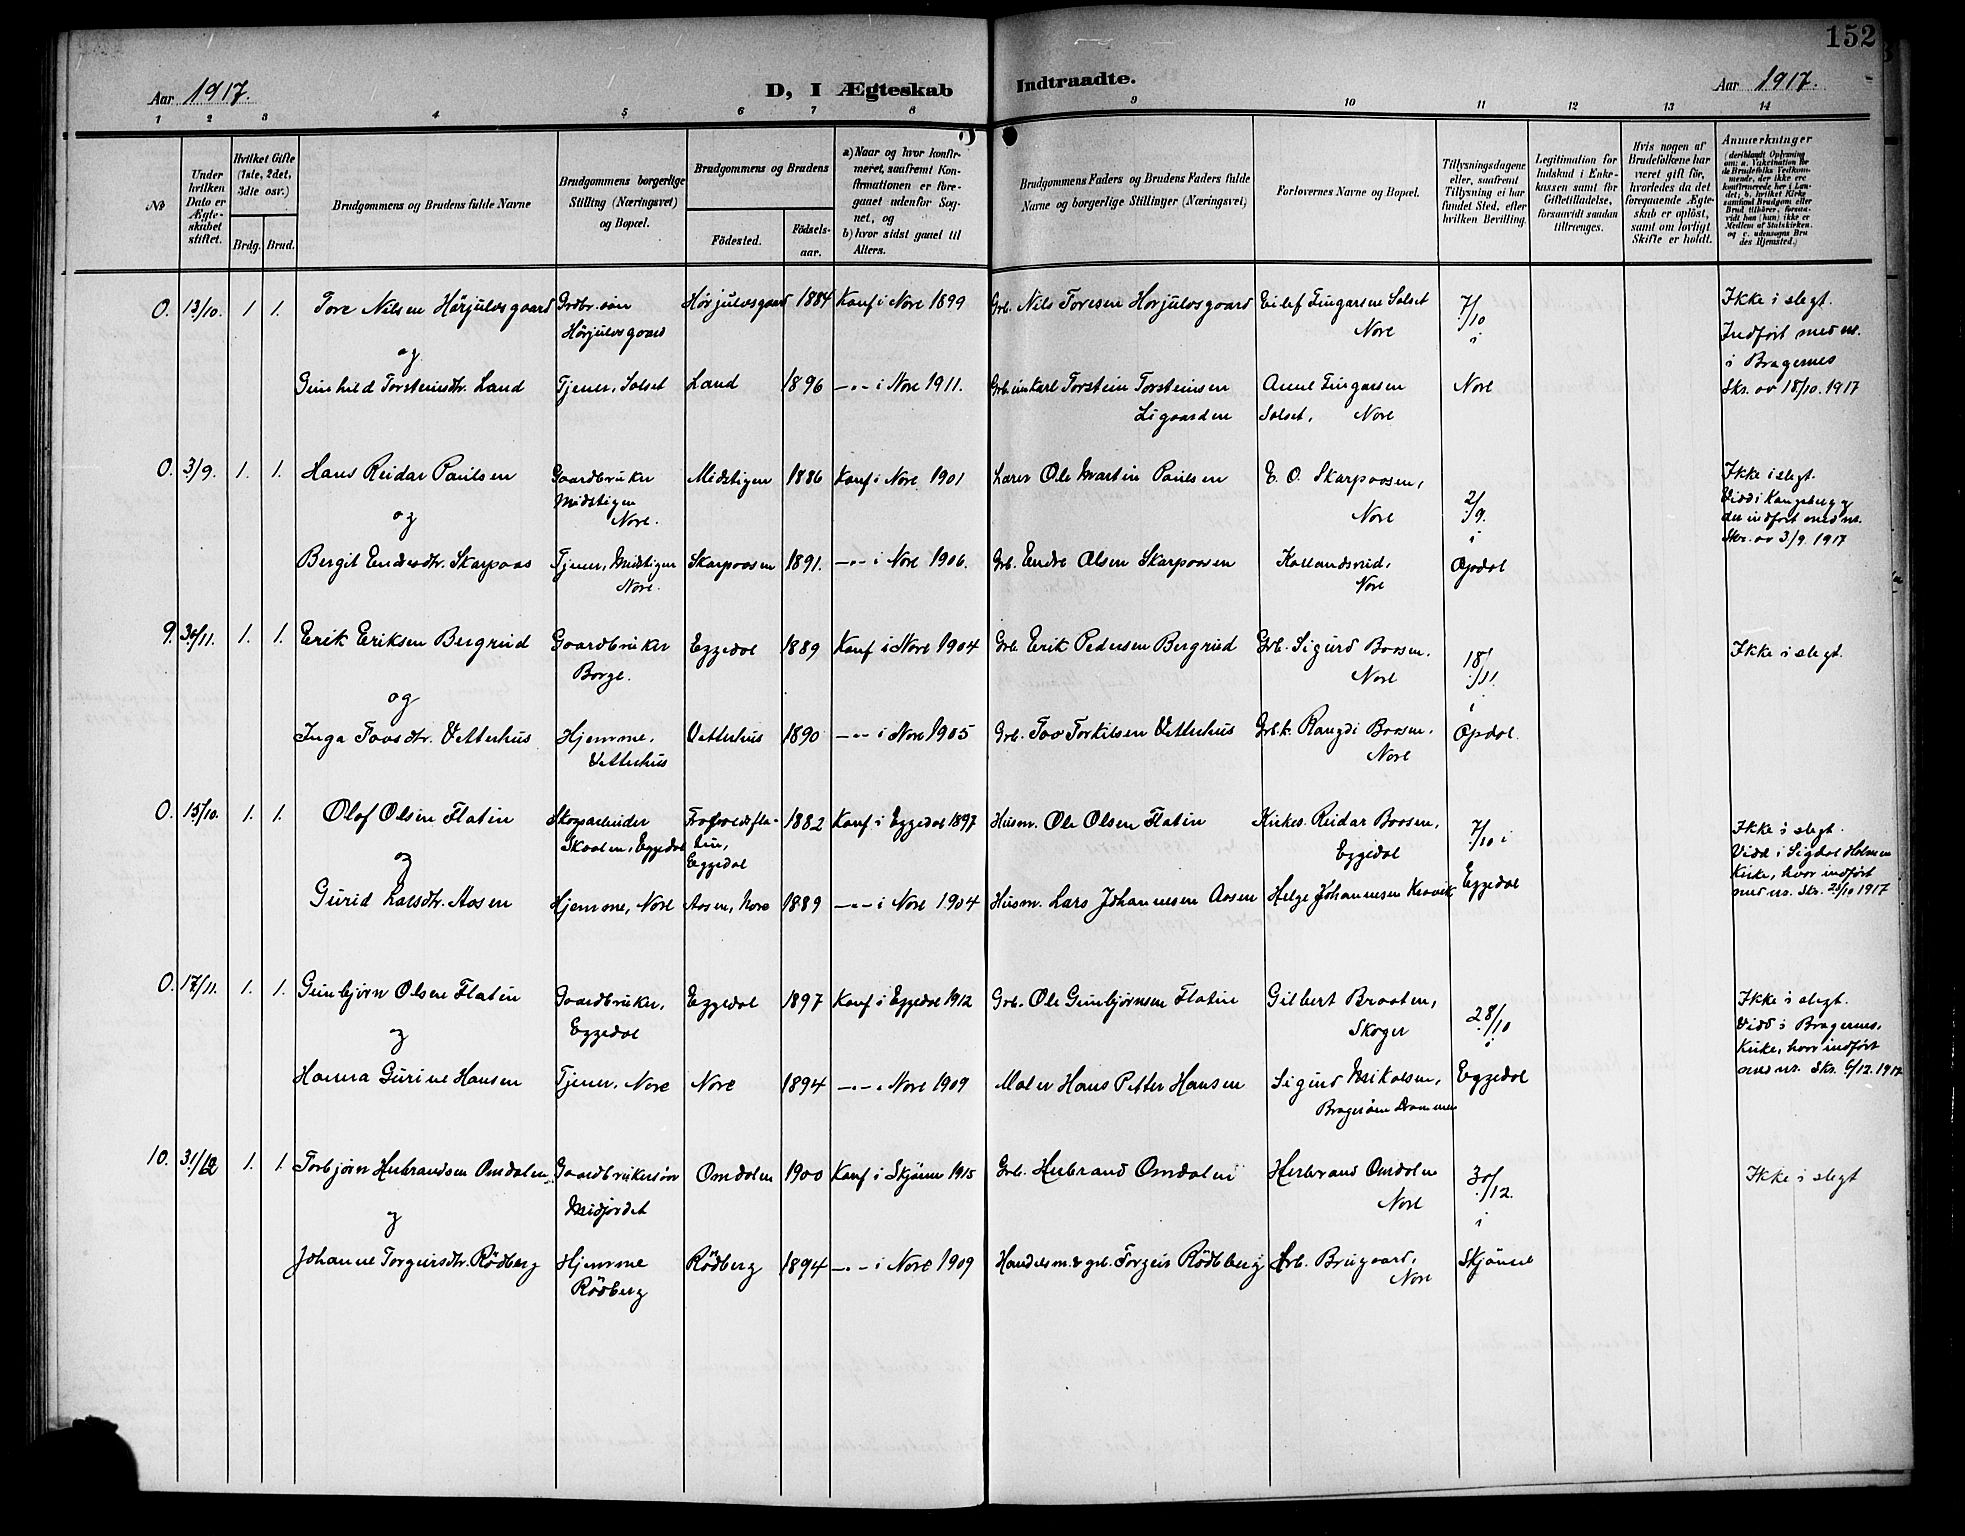 152
Aar 1917.
D, I Ægteskab Indtraadte.
Aar 1917.
1 2 3 4 5 6 7 8 9 10 11 12 13 14
No
Under hvilken Dato er Ægteskabet stiftet.
Hvilket Gifte (1ste, 2det, 3die osv.)
Brdg. Brud.
Brudgommens og Brudens fulde Navne
Brudgommens borgerlige Stilling (Næringsvei) og Bopæl.
Brudgommens og Brudens
Födested.
Födselsaar.
a) Naar og hvor konfirmeret, saafremt Konfirmationen er foregaaet udenfor Sognet, og
b) hvor sidst gaaet til Alters.
Brudgommens Faders og Brudens Faders fulde Navne og borgerlige Stillinger (Næringsvei)
Forlovernes Navne og Bopæl.
Tillysningsdagene eller, saafremt Tillysning ei har fundet Sted, efter hvilken Bevilling.
Legitimation for Indskud i Enkekassen samt for Giftetilladelse, forsaavidt saadan tiltrænges.
Hvis nogen af Brudefolkene har været gift för, hvorledes da det foregaaende Ægteskab er oplöst, samt om lovligt Skifte er holdt.
Anmerkninger
(deriblandt Oplysning om: a. Vakcination for de Brudefolks Vedkommende, der ikke ere konfirmerede her i Landet; b. hvilket Kirkesamfund Brudgom eller Brud tilhører, forsaavidt han (hun) ikke er Medlem af Statskirken. og c. udensogns Brudes Hjemsted.)
0. 13/10. 1 1. Tore Nilsen Hørjulvsgaard Grdbr.søn Hørjulvsgaard Hørjulvsgaard 1884 Konf i Nore 1899 Grb. Nils Toresen Hørjulvsgaard Eilef Tingarsen Solset Nore 7/10 i Ikke i slegt. Indført med nr. i Bragernes
og
Gunhild Torsteinsdtr. Land Tjener, Solset Land 1896 —"— i Nore 1911. Torstein Torsteinsen Ligaarden Anne Tingarsen Solset, Nore Nore Skr. av 18/10. 1917
0. 3/9. 1. 1. Hans Reidar Paulsen Gaardbruker Midstigen Nore. Midstigen 1886 Konf i Nore 1901 Lærer Ole Martin Paulsen E. O. Skarpaasen, Nore 2/9. i Ikke i slegt. Viet i Kongsberg og der indført med nr. Skr. av 3/9. 1917
og
Bergit Endresdtr. Skarpaas Tjener, Midstigen Nore. Skarpaasen 1891. —"— i Nore 1906. Grb. Endre Olsen Skarpaasen Nore Opdal
9. 30/11. 1. 1. Erik Eriksen Bergrud Gaardbruker Borge. Eggedal 1889 Konf i Nore 1904 Grb. Erik Pedersen Bergrud Grb. Sigurd Baasen. Nore 18/11. i Ikke i slegt.
og
Inga Toosdtr. Vetterhus Hjemme. Vetterhus Vetterhus 1890 —"— i Nore 1905 Grb. Too Torkilsen Vetterhus Grb.k. Rangdi Baasen. Nore Opdal.
0. 15/10. 1. 1. Olaf Olsen Flatin Skogsarbeider Skaalen, Eggedal Eggedal 1882 Konf i Eggedal 1897 Husm. Ole Olsen Flatin Kirkes. Reidar Baasen, Eggedal 7/10 i Ikke i slegt. Viet i Sigdal Holmen Kirke, hvor indført med nr. Skr. 25/10 1917
og
Gurid Larsdtr. Aasen Hjemme, Nore Aasen, Nore 1889 —"— i Nore 1904 Husm. Lars Johannesen Aasen Helge Johannesen Kravik Eggedal
0. 17/11. 1. 1. Gunbjørn Olsen Flatin Gaardbruker, Eggedal Eggedal 1897 Konf i Eggedal 1912 Grb. Ole Gunbjørnsen Flatin Gilbert Braaten, Skoger 28/10 i Ikke i slegt. Viet i Bragernes. Kirke, hvor indført med nr. Skr. 6/12. 1917
og
Hanna Gurine Hansen Tjener, Nore Nore 1894 —"— i Nore 1909 Maler Hans Petter Hansen Sigurd Mikalsen, Drammen Eggedal
10. 31/12 1. 1. Torbjørn Herbrandsen Omdalen Gaardbrukersøn Midjordet Omdalen 1900 Konf i Skjønne 1915 Grb. Herbrand Omdalen Herbrand Omdalen Nore 30/12. i Ikke i slegt
og
Johanne Torgeirsdtr. Rödberg Hjemme Rödberg Rödberg 1894 —"— i Nore 1909 Handelsm. & grb. Torgeir Rödberg Brugaard, Nore Skjønne